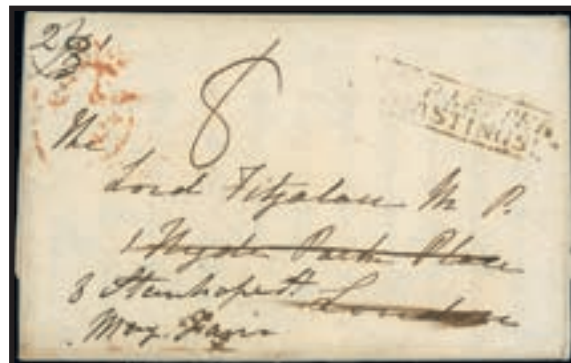 8
HASTINGS
The
Lord Fitzalan M. P.
1 Hyde Park Place
8 Stanhope St. London
May Fair